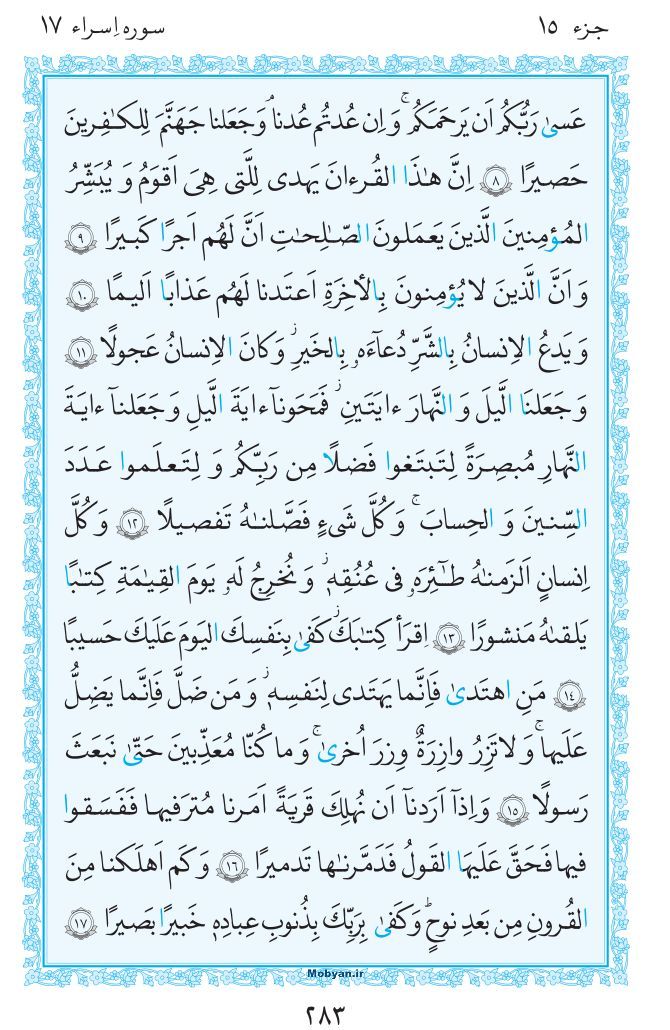 جزء ۱۵
سوره اِسراء ۱۷
عَسىٰ رَبُّكُم اَن يَرحَمَكُم ۚ وَ اِن عُدتُم عُدنا ۘ وَ جَعَلنا جَهَنَّمَ لِلكٰفِرينَ
حَصيرًا ۸ اِنَّ هٰذَا القُرءانَ يَهدى لِلَّتى هِىَ اَقوَمُ وَ يُبَشِّرُ
المُؤمِنينَ الَّذينَ يَعمَلونَ الصّٰلِحٰتِ اَنَّ لَهُم اَجرًا كَبيرًا ۹
وَ اَنَّ الَّذينَ لا يُؤمِنونَ بِالأخِرَةِ اَعتَدنا لَهُم عَذابًا اَليمًا ۱۰
وَ يَدعُ الاِنسانُ بِالشَّرِّ دُعآءَهٗ بِالخَيرِ ۖ وَ كانَ الاِنسانُ عَجولًا ۱۱
وَ جَعَلنَا الَّيلَ وَ النَّهارَ ءايَتَينِ ۖ فَمَحَونآ ءايَةَ الَّيلِ وَ جَعَلنآ ءايَةَ
النَّهارِ مُبصِرَةً لِتَبتَغوا فَضلًا مِن رَبِّكُم وَ لِتَعلَموا عَدَدَ
السِّنينَ وَ الحِسابَ ۚ وَ كُلَّ شَىءٍ فَصَّلنٰهُ تَفصيلًا ۱۲ وَ كُلَّ
اِنسانٍ اَلزَمنٰهُ طٰٓئِرَهٗ فى عُنُقِهٖ ۖ وَ نُخرِجُ لَهٗ يَومَ القِيٰمَةِ كِتٰبًا
يَلقىٰهُ مَنشورًا ۱۳ اِقرَأ كِتٰبَكَ ۖ كَفىٰ بِنَفسِكَ اليَومَ عَلَيكَ حَسيبًا
۱۴ مَنِ اهتَدىٰ فَاِنَّما يَهتَدى لِنَفسِهٖ ۖ وَ مَن ضَلَّ فَاِنَّما يَضِلُّ
عَلَيها ۚ وَ لا تَزِرُ وازِرَةٌ وِزرَ اُخرىٰ ۚ وَ ما كُنّا مُعَذِّبينَ حَتّىٰ نَبعَثَ
رَسولًا ۱۵ وَ اِذآ اَرَدنآ اَن نُهلِكَ قَريَةً اَمَرنا مُترَفيها فَفَسَقوا
فيها فَحَقَّ عَلَيهَا القَولُ فَدَمَّرنٰها تَدميرًا ۱۶ وَ كَم اَهلَكنا مِنَ
القُرونِ مِن بَعدِ نوحٍ ۗ وَ كَفىٰ بِرَبِّكَ بِذُنوبِ عِبادِهٖ خَبيرًا بَصيرًا ۱۷
Mobyan.ir
۲۸۳